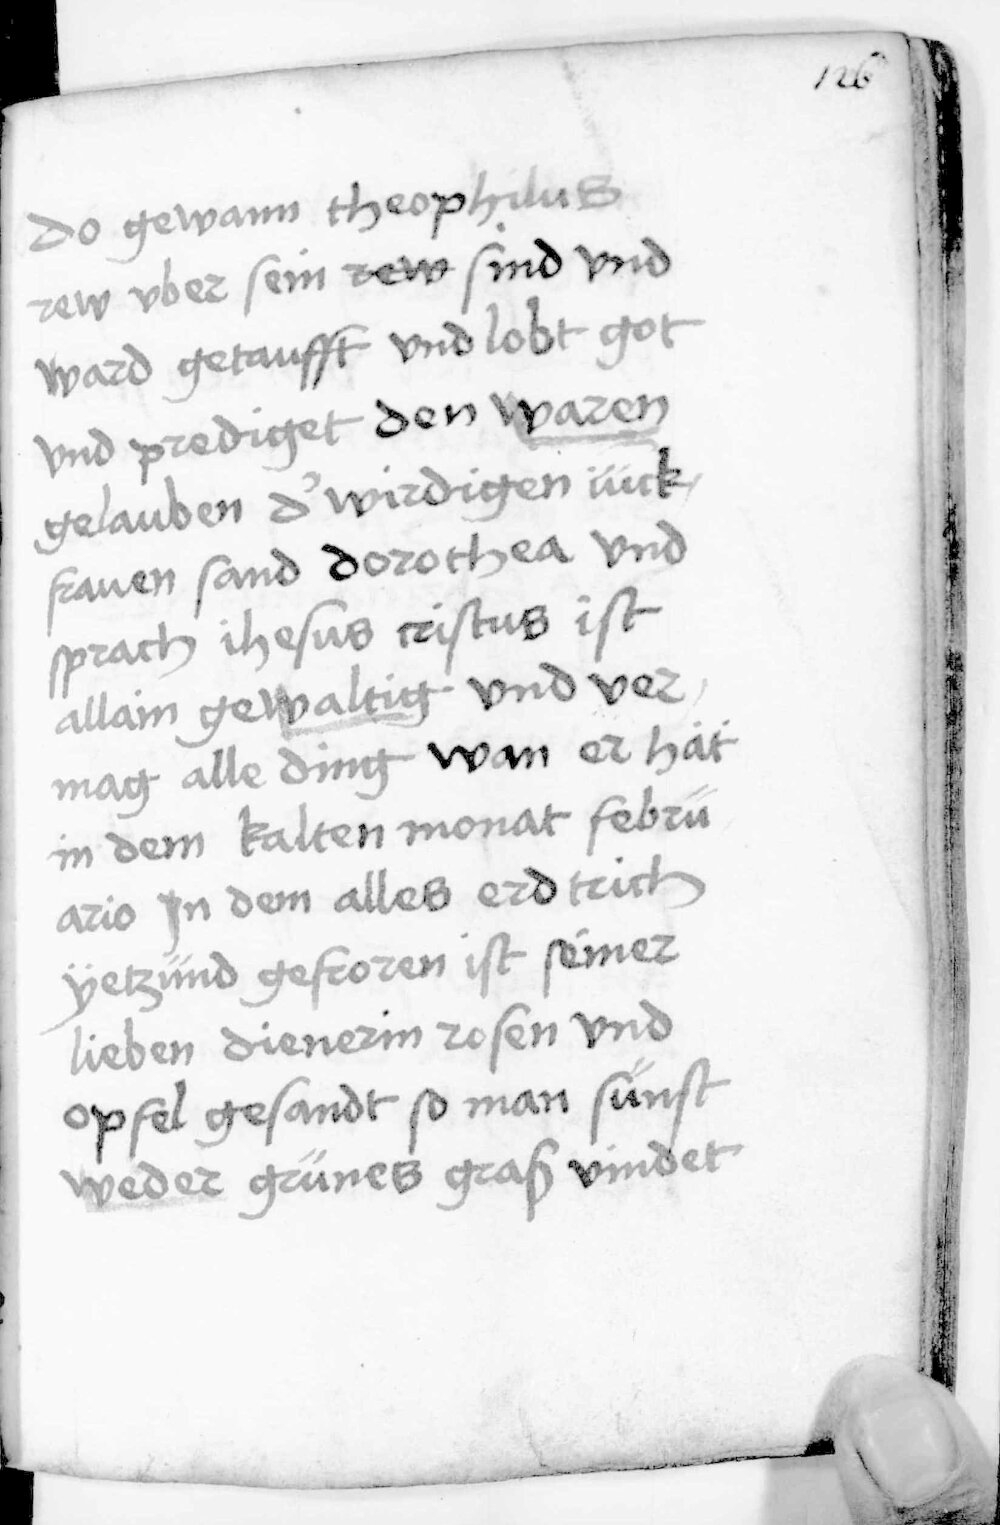 126
do gewann theophilus
rew vber sein rew sind vnd
ward getaufft vnd lobt got
vnd prediget den waren
gelauben d' wirdigen iück
frauen sand dorothea vnd
sprach ihesus cristus ist
allain gewaltig vnd ver
mag alle ding wan er hät
in dem kalten monat febrü
ario Jn dem alles erdtrich
ÿetzünd gefroren ist seiner
lieben dienerin rosen vnd
opfel gesandt so man sünst
weder grünes graß vindet